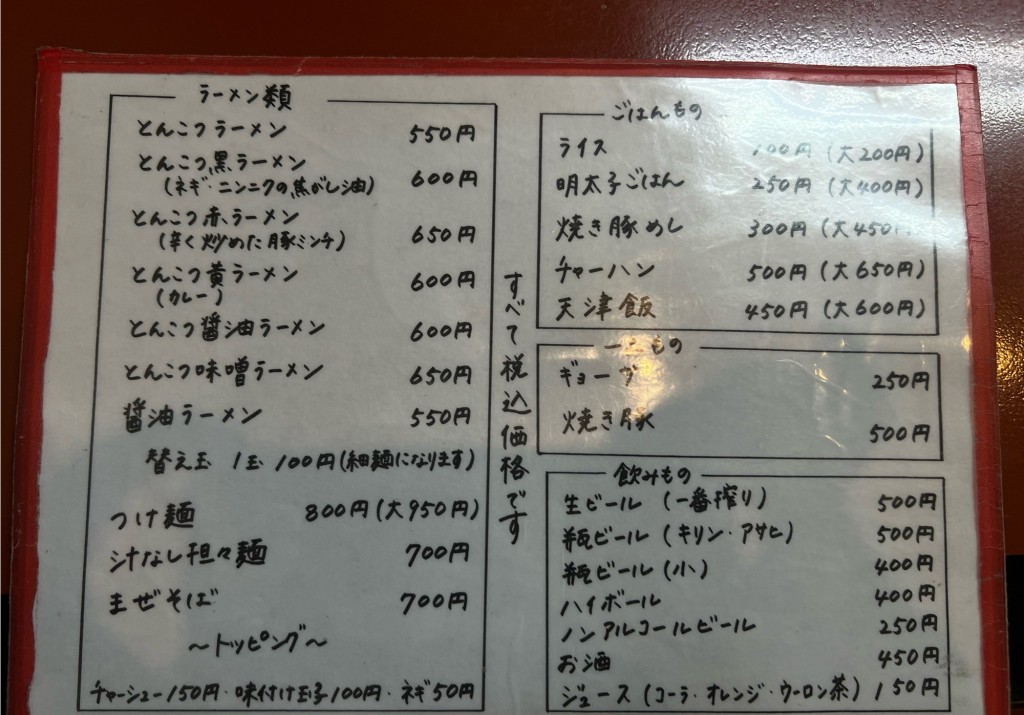 ラーメン類
とんこつラーメン 550円
とんこつ黒ラーメン 600円
(ネギ・ニンニクの焦がし油)
とんこつ赤ラーメン 650円
(辛く炒めた豚ミンチ)
とんこつ黄ラーメン 600円
(カレー)
とんこつ醤油ラーメン 600円
とんこつ味噌ラーメン 650円
醤油ラーメン 550円
替え玉 1玉 100円(細麺になります)
つけ麺 800円(大950円)
汁なし担々麺 700円
まぜそば 700円
〜トッピング〜
チャーシュー150円・味付け玉子100円・ネギ50円
すべて税込価格です
ごはんもの
ライス 100円(大200円)
明太子ごはん 250円(大400円)
焼き豚めし 300円(大450
チャーハン 500円(大650円)
天津飯 450円(大600円)
一 もの
ギョーザ 250円
焼き豚 500円
飲みもの
生ビール(一番搾り) 500円
瓶ビール(キリン・アサヒ) 500円
瓶ビール(小) 400円
ハイボール 400円
ノンアルコールビール 250円
お酒 450円
ジュース(コーラ・オレンジ・ウーロン茶) 150円